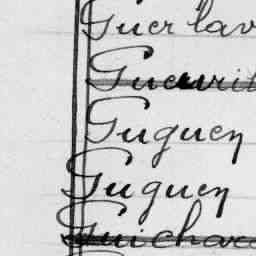 Guer lav
Guerrit
Guguen
Guguen
Guichard